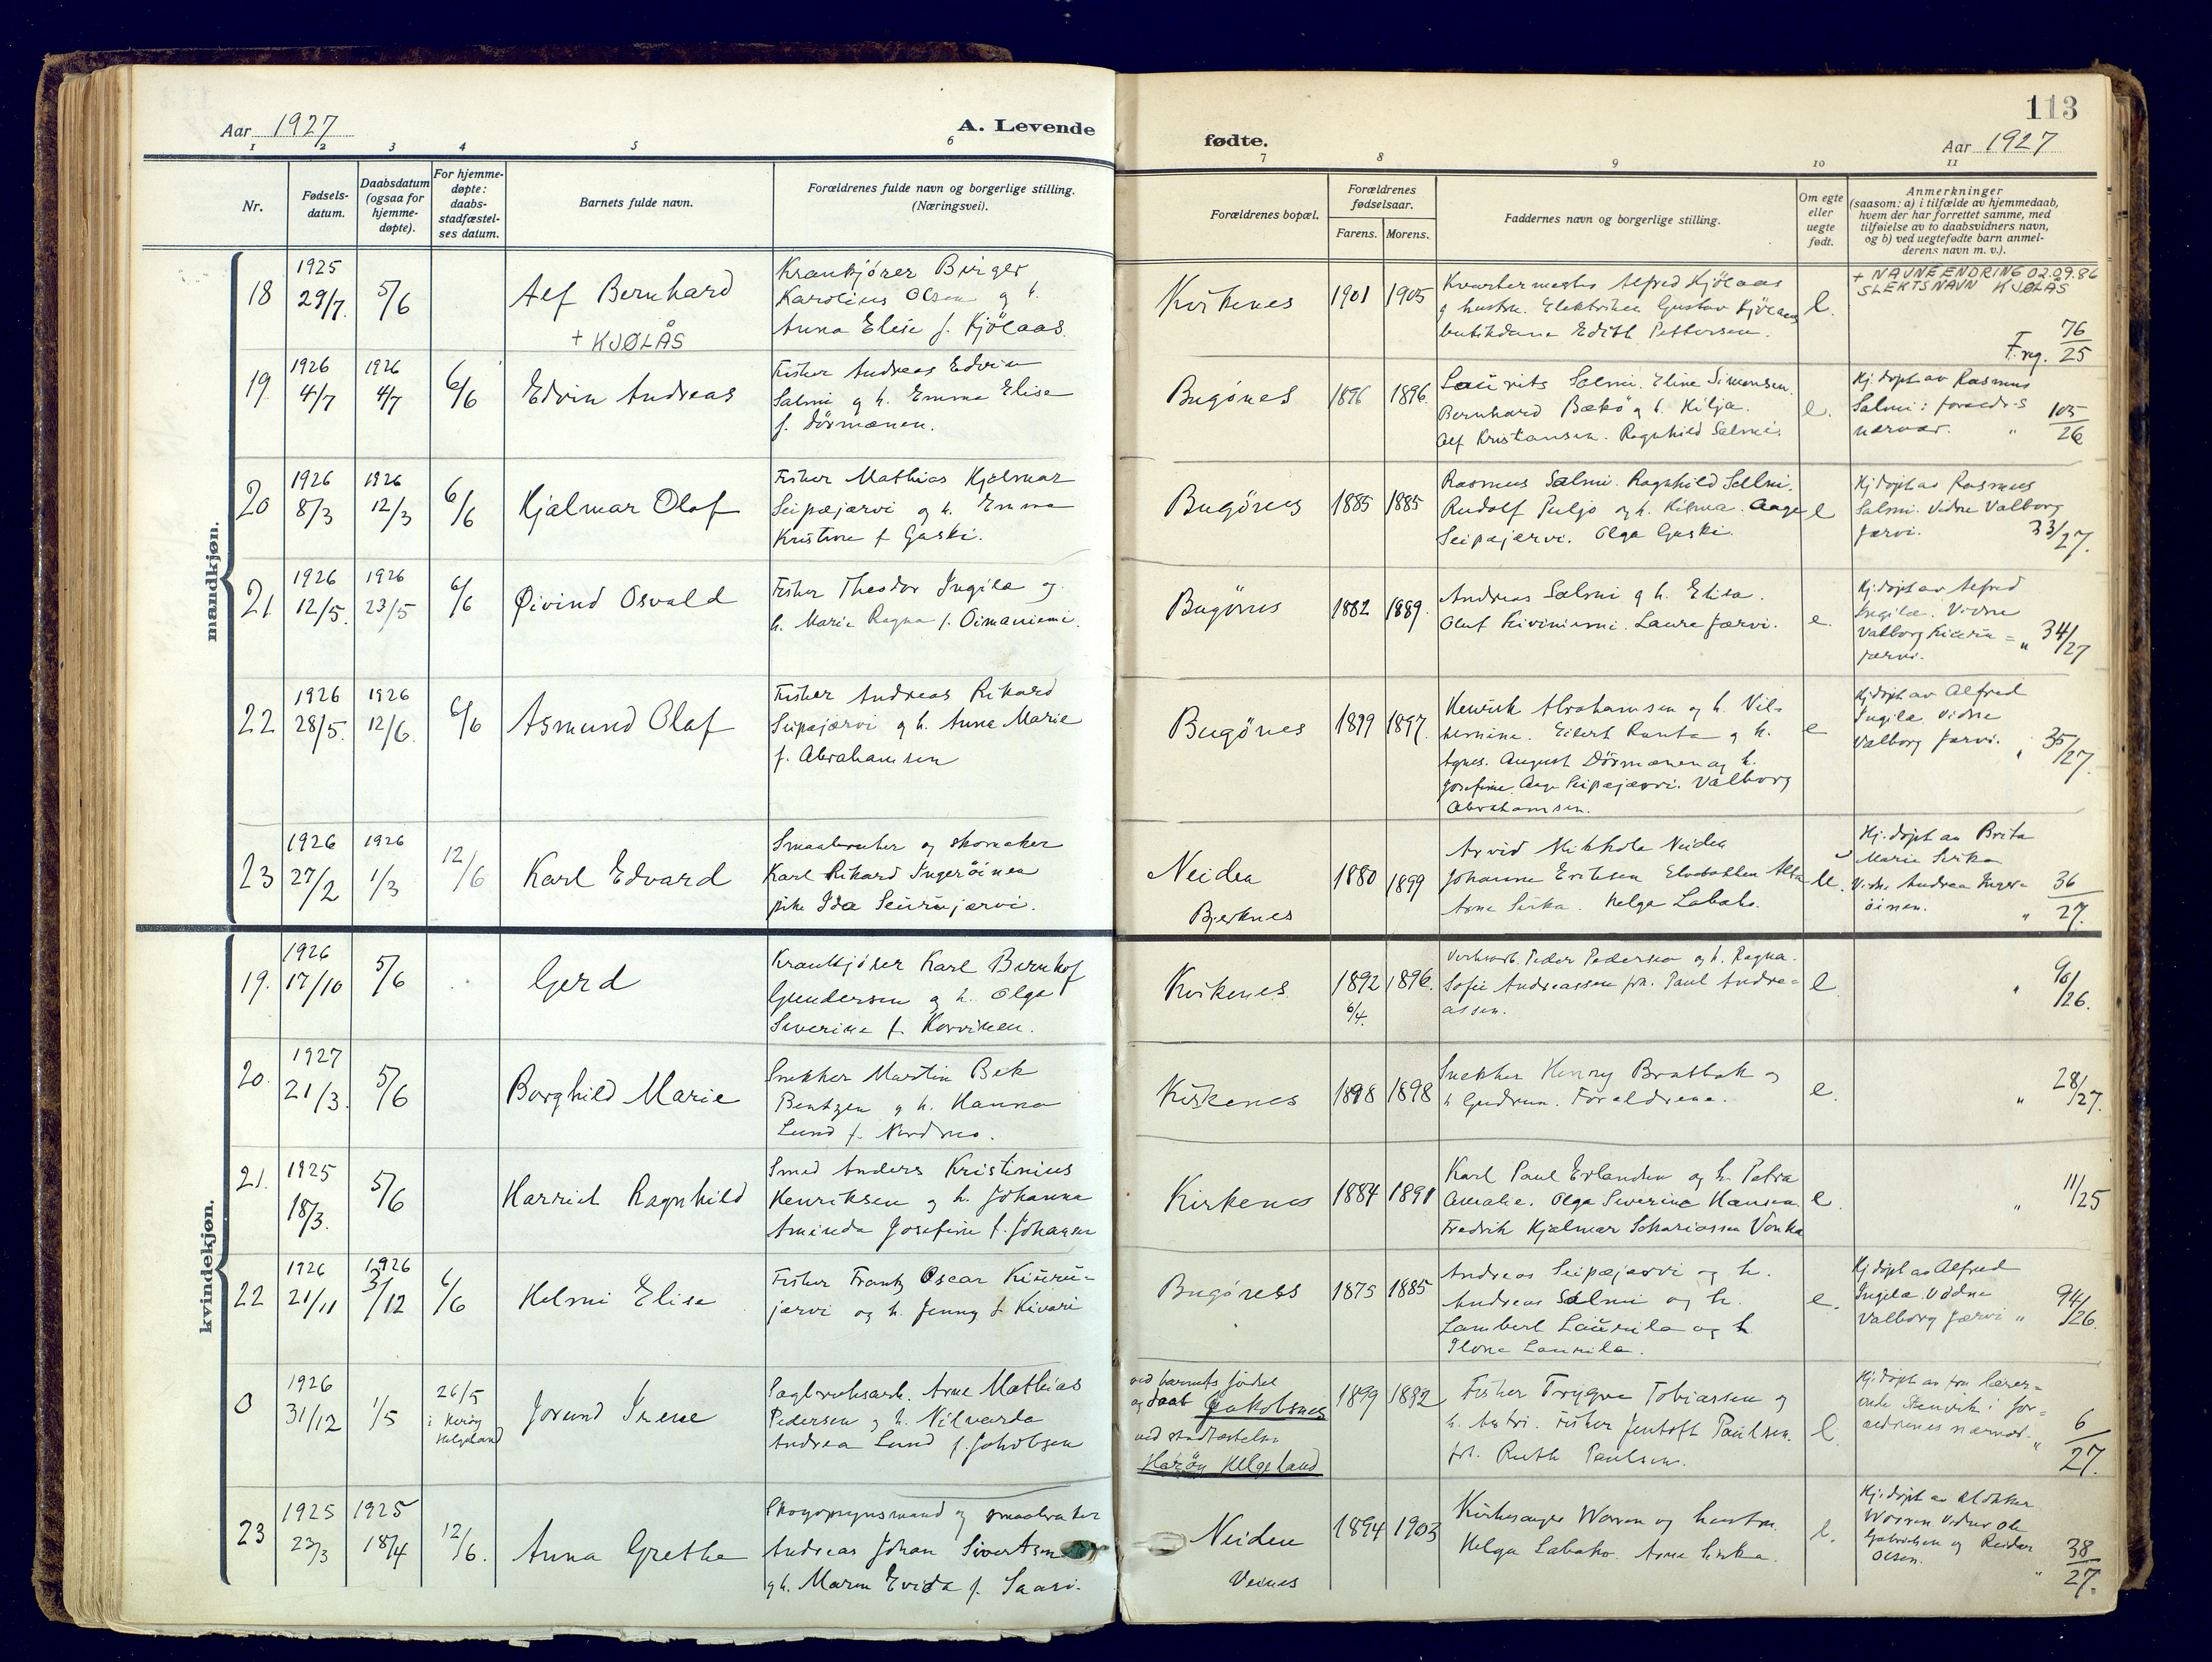 113
Aar 1927
A. Levende
fødte.
Aar 1927
1 2 3 4 5 6 7 8 9 10 11
Nr.
Fødsels-
datum.
Daabsdatum
(ogsaa for
hjemme-
døpte).
For hjemme-
døpte:
daabs-
stadfæstel-
ses datum.
Barnets fulde navn.
Forældrenes fulde navn og borgerlige stilling.
(Næringsvei).
Forældrenes bopæl.
Forældrenes
fødselsaar.
Farens. Morens.
Faddernes navn og borgerlige stilling.
Om egte
eller
uegte
født.
Anmerkninger
(saasom: a) i tilfælde av hjemmedaab,
hvem der har forrettet samme, med
tilføielse av to daabsvidners navn,
og b) ved uegtefødte barn anmel-
derens navn m. v.).
mandkjøn.
18
1925
29/7.
5/6
Alf Bernhard
+ KJØLÅS
Krankjører Birger
Karolius Olsen og h.
Anna Elise f. Kjölaas.
Kirkenes
1901
1905
Kvartermester Alfred Kjölaas
g hustru. Elektriker Gustav Kjölaas
butikdame Edith Pettersen.
e.
+ NAVNEENDRING 02.09.86
SLEKTSNAVN KJØLÅS
F.reg. 76/25
19
1926
4/7
1926
4/7
6/6
Edvin Andreas
Fisker Andreas Edvin
Salmi g h. Emma Elise
f. Dörmænen.
Bugönes
1896
1896.
Laurits Salmi. Eline Simonsen.
Bernhard Bækö g h. Hilja.
Alf Kristiansen. Ragnhild Salmi.
e.
Hj. døpt av Rasmus
Salmi i foraeldr-s
nærvær. " 105/26
20
1926
8/3
1926
12/3
6/6
Hjalmar Olaf
Fisker Mathias Hjalmar
Seipæjærvi og h. Emma
Kristine f Gaski.
Bugönes
1885
1885
Rasmus Salmi. Ragnhild Salmi.
Rudolf Puljo og h. Hilma. Aage
Seipajærvi. Olga Gaski.
e
Hj døpt av Rasmus
Salmi. Vidne Valborg
Jærvi. 33/27.
21
1926
12/5.
1926
23/5
6/6
Øivind Osvald
Fisker Theodor Ingila og
h. Marie Ragna f. Oimaniemi.
Bugönes
1882
1889.
Andreas Salmi g h. Elisa.
Olaf Kiviniemi. Laura Jærvi.
e.
Hj. døpt av Alfred
Ingila. Vidne
Valborg Kiuru=
jærvi. " 34/27
22
1926
28/5.
1926
12/6.
6/6
Asmund Olaf
Fisker Andreas Rikard
Seipajærvi g h. Anna Marie
f. Abrahamsen
Bugönes
1899
1897.
Henrik Abrahamsen og h. Vil-
hemine. Eilert Ranta g h.
Agnes. August Dörmænen og h.
Josefine. Aage Seipajærvi. Valborg
Abrahamsen.
e
Hj døpt av Alfred
Ingila. Vidne
Valborg Jærvi. 35/27.
23
1926
27/2
1926
1/3
12/6
Karl Edvard
Smaabruker og skomaker
Karl Rikard Ingeröinen
pike Ida Seurujærvi.
Neiden
Bjerknes
1880
1899
Arvid Mikkola Neiden
Johanne Eriksen Elvebakken Alta
Arne Sirka. Helga Labahå.
Ue.
Hj. døpt av Brita
Marie Sirka
Vidne Andrea Inger-
öinen. " 36/27.
kvindekjøn.
19.
1926
17/10
5/6
Gerd
Krankjører Karl Bernhof
Gundersen og h. Olga
Severine f. Korvinen.
Kirkenes
1892
6/4.
1896.
Verksarb. Peder Pedersen og h. Ragna.
Sofie Andreassen frk. Paul Andre=
assen.
e
" 90/26.
20.
1927
21/3.
5/6
Borghild Marie
Snekker Martin Bek
Bentzen g h. Hanna
Lund f. Nordmo.
Kirkenes
1898
1898
Snekker Henry Bratbak g
h Gudrun. Forældrene.
e.
" 28/27.
21.
1925
18/3.
5/6
Harriet Ragnhild
Smed Anders Kristinius
Henriksen og h. Johanna
Aminda Josefine f. Johansen
Kirkenes
1884
1891
Karl Paul Erlandsen og h Petra
Amalie. Olga Severine Hansen.
Fredrik Hjalmar Sakariassen Vonka
e.
" 11/25
22
1926
21/11
1926
3/12
6/6
Helmi Elise
Fisker Frantz Oscar Kiuru=
jærvi og h. Jenny f Kivari
Bugönes
1875
1885
Andreas Seipæjærvi og h.
Andreas Salmi og h.
Lambert Laurila og h
Ilona Laurila.
e.
Hj døpt av Alfred
Ingila. Vidne
Valborg Jærvi " 94/26.
0
1926
31/12
1/5
26/5
i Herøy
Helgeland
Jorund Irene
Sagbruksarb. Arne Mathias
Pedersen g h. Nilvarda
Andrea Lund f. Jakobsen
ved barnets fødsel
og daab Jakobsnes
ved stadfæstelsen
Herøy Helgeland
1899
1892
Fisker Trygve Tobiassen g
h. Astri. Fisker Jentoft Paulsen.
frk. Ruth Paulsen.
e.
Hj. døpt av fru lærer=
inde Stenvik i for=
ældrenes nærvær. " 6/27.
23
1925
23/3
1925
18/4
12/6.
Anna Grethe
Skogopsynsmand g smaabruker
Andreas Johan Sivertsen
g h. Maren Evida f. Saari.
Neiden
Veines
1894
1903
Kirkesanger Woren og hustru
Helga Labahå. Arne Sirka.
e.
Hj. døpt av klokker
Woren. Vidner Ole
Gabrielsen og Reidar
Olsen. " 38/27.